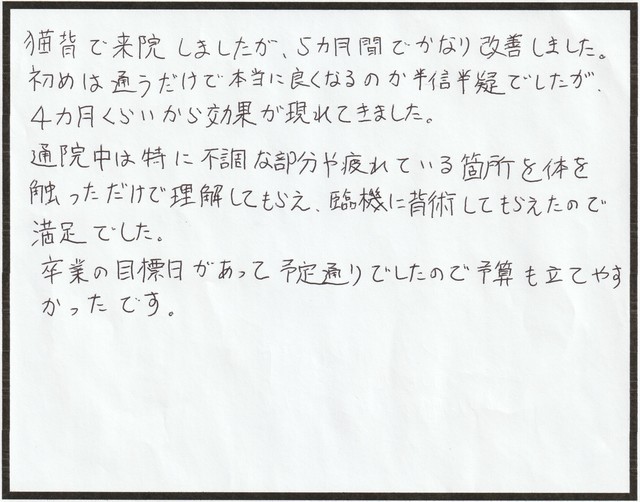 猫背で来院しましたが、5カ月間でかなり改善しました。
初めは通うだけで本当に良くなるのか半信半疑でしたが、
4カ月くらいから効果が現れてきました。
通院中は特に不調な部分や疲れている箇所を体を
触っただけで理解してもらえ、臨機に背術してもらえたので
満足でした。
卒業の目標日があって予定通りでしたので予算も立てやす
かったです。